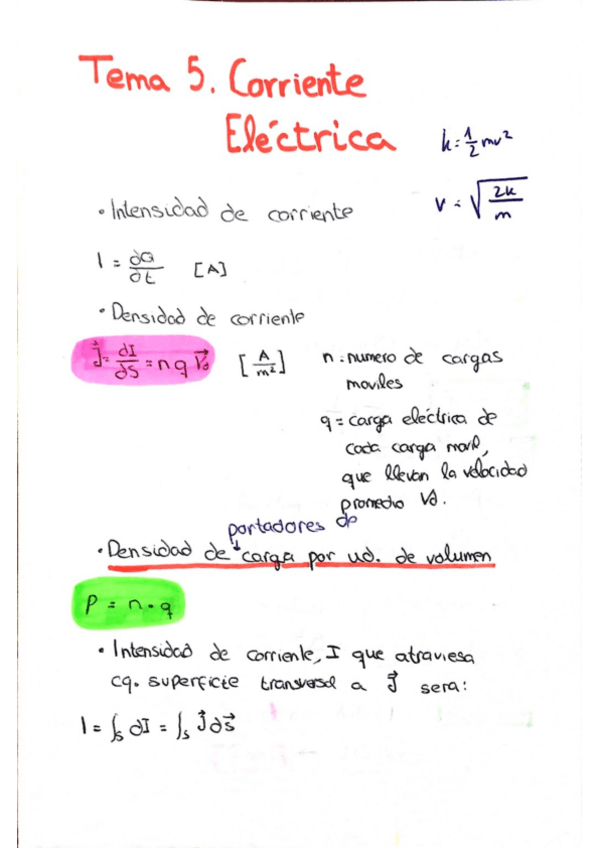 Tema 5. Corriente
Eléctrica
k = 1/2 mv²
v = √(2k/m)
• Intensidad de corriente
I = dQ/dt [A]
• Densidad de corriente
J⃗ = dI/dS = n q v⃗d [A/m²]
n = numero de cargas
moviles
q = carga eléctrica de
cada carga movil,
que llevan la velocidad
promedio Vd.
portadores de
• Densidad de carga por ud. de volumen
ρ = n · q
• Intensidad de corriente, I que atraviesa
cq. superficie transversal a J⃗ sera:
I = ∫s dI = ∫s J⃗ dS⃗